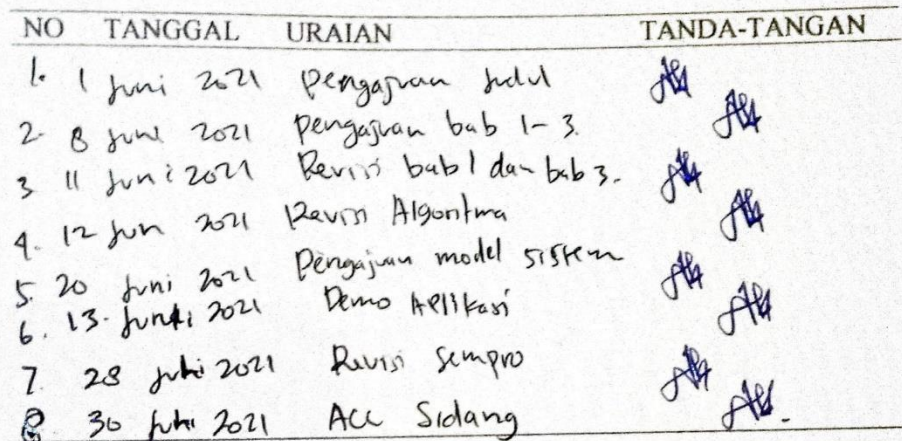 NO TANGGAL URAIAN TANDA-TANGAN
1. 1 Juni 2021 Pengajuan Judul
2. 8 Juni 2021 Pengajuan bab 1-3.
3. 11 Juni 2021 Revisi bab 1 dan bab 3.
4. 12 Jun 2021 Revisi Algoritma
5. 20 Juni 2021 Pengajuan model sistem
6. 13. 2021 Demo Aplikasi
7. 28 Juli 2021 Revisi Sempro
8. 30 Juli 2021 ACC Sidang